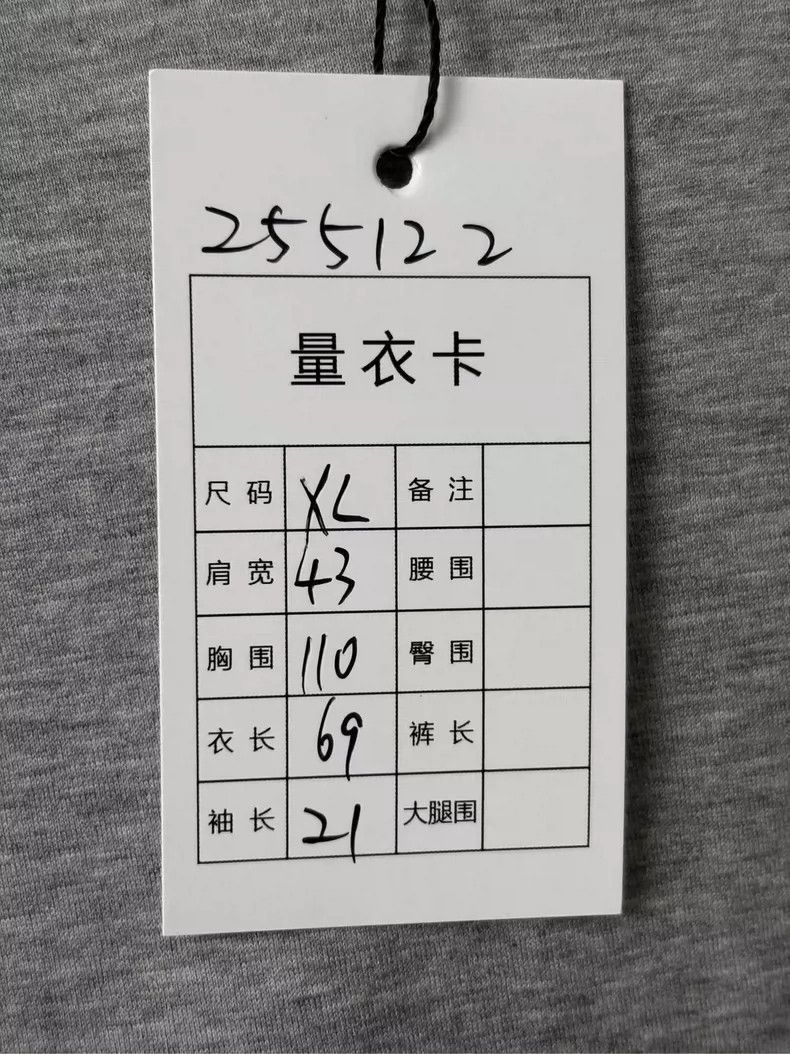 255122
量衣卡
尺码 XL 备注
肩宽 43 腰围
胸围 110 臀围
衣长 69 裤长
袖长 21 大腿围